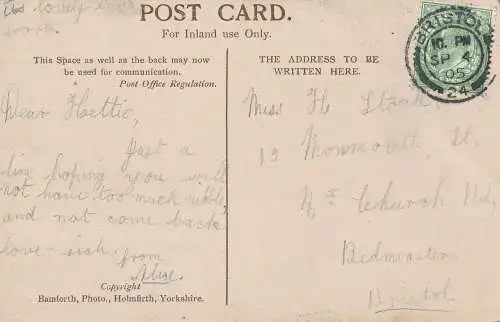 Its lovely
POST CARD.
For Inland use Only.
This Space as well as the back may now
be used for communication.
Post Office Regulation.
THE ADDRESS TO BE
WRITTEN HERE.
BRISTOL
10. PM
SP 4
05
24
Dear Hettie,
Just a
line hoping you will
not have too much
and not come back
love-sick.
from
Alice.
Miss H.
19 Monmouth St,
Nr Church Rd,
Bedminster
Bristol
Copyright
Bamforth, Photo., Holmfirth, Yorkshire.